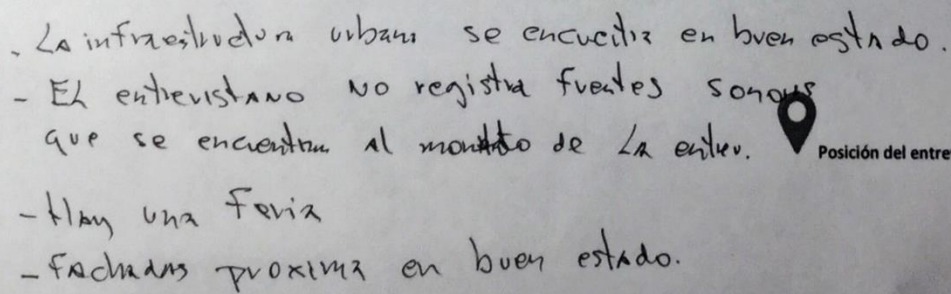 . La infraestructura urbana se encuentra en buen estado.
- El entrevistado no registra fuentes sonoras
que se encuentran al momento de la entrev.
Posición del entre
- Hay una feria
- Fachadas proxima en buen estado.